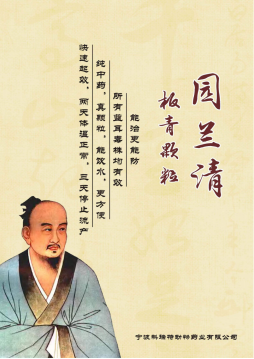 园兰清
板青颗粒
能治更能防
所有蓝耳毒株均有效
纯中药，真颗粒，能饮水，更方便
快速起效，两天体温正常，三天停止流产
宁波科瑞特动物药业有限公司